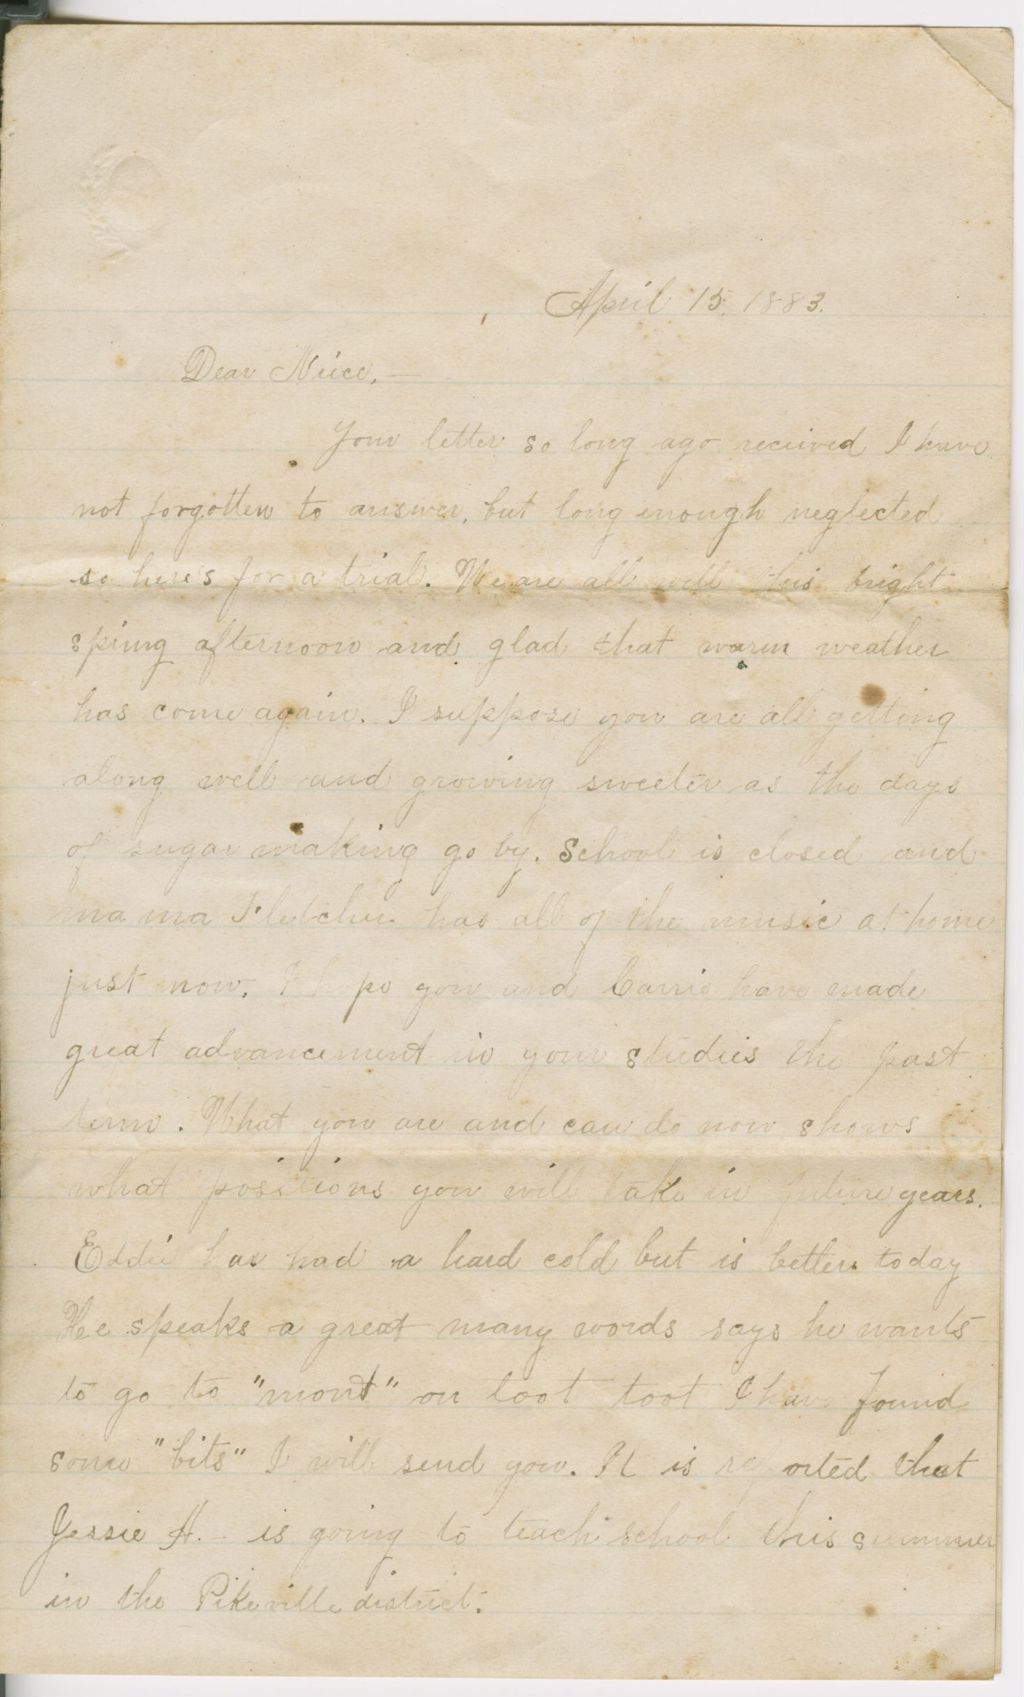 April 15, 1883.
Dear Niece,—
Your letter so long ago received I have
not forgotten to answer, but long enough neglected
so here's for a trial. We are all well this bright
sping afternoon and glad that warm weather
has come again. I suppose you are all getting
along well and growing sweeter as the days
of sugar making go by. School is closed and
ma ma Fletcher has all of the music at home
just now. I hope you and Carrie have made
great advancement in your studies the past
term. What you are and can do now shows
what positions you will take in future years.
Eddie has had a hard cold but is better today
He speaks a great many words says he wants
to go to "mont" on toot toot I have found
some "bits" I will send you. It is reported that
Jessie H. is going to teach school this summer
in the Pikeville district.